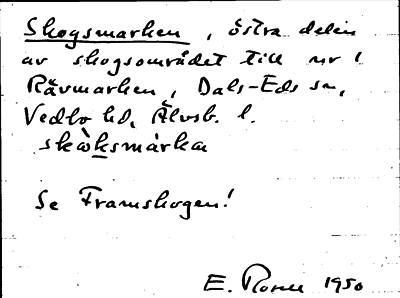 Skogsmarken, östra delen
av skogsområdet till nr 1
Rävmarken, Dals-Eds sn,
Vedbo hd, Älvsb. l.
skòksmárka
Se Framskogen!
E. 1950